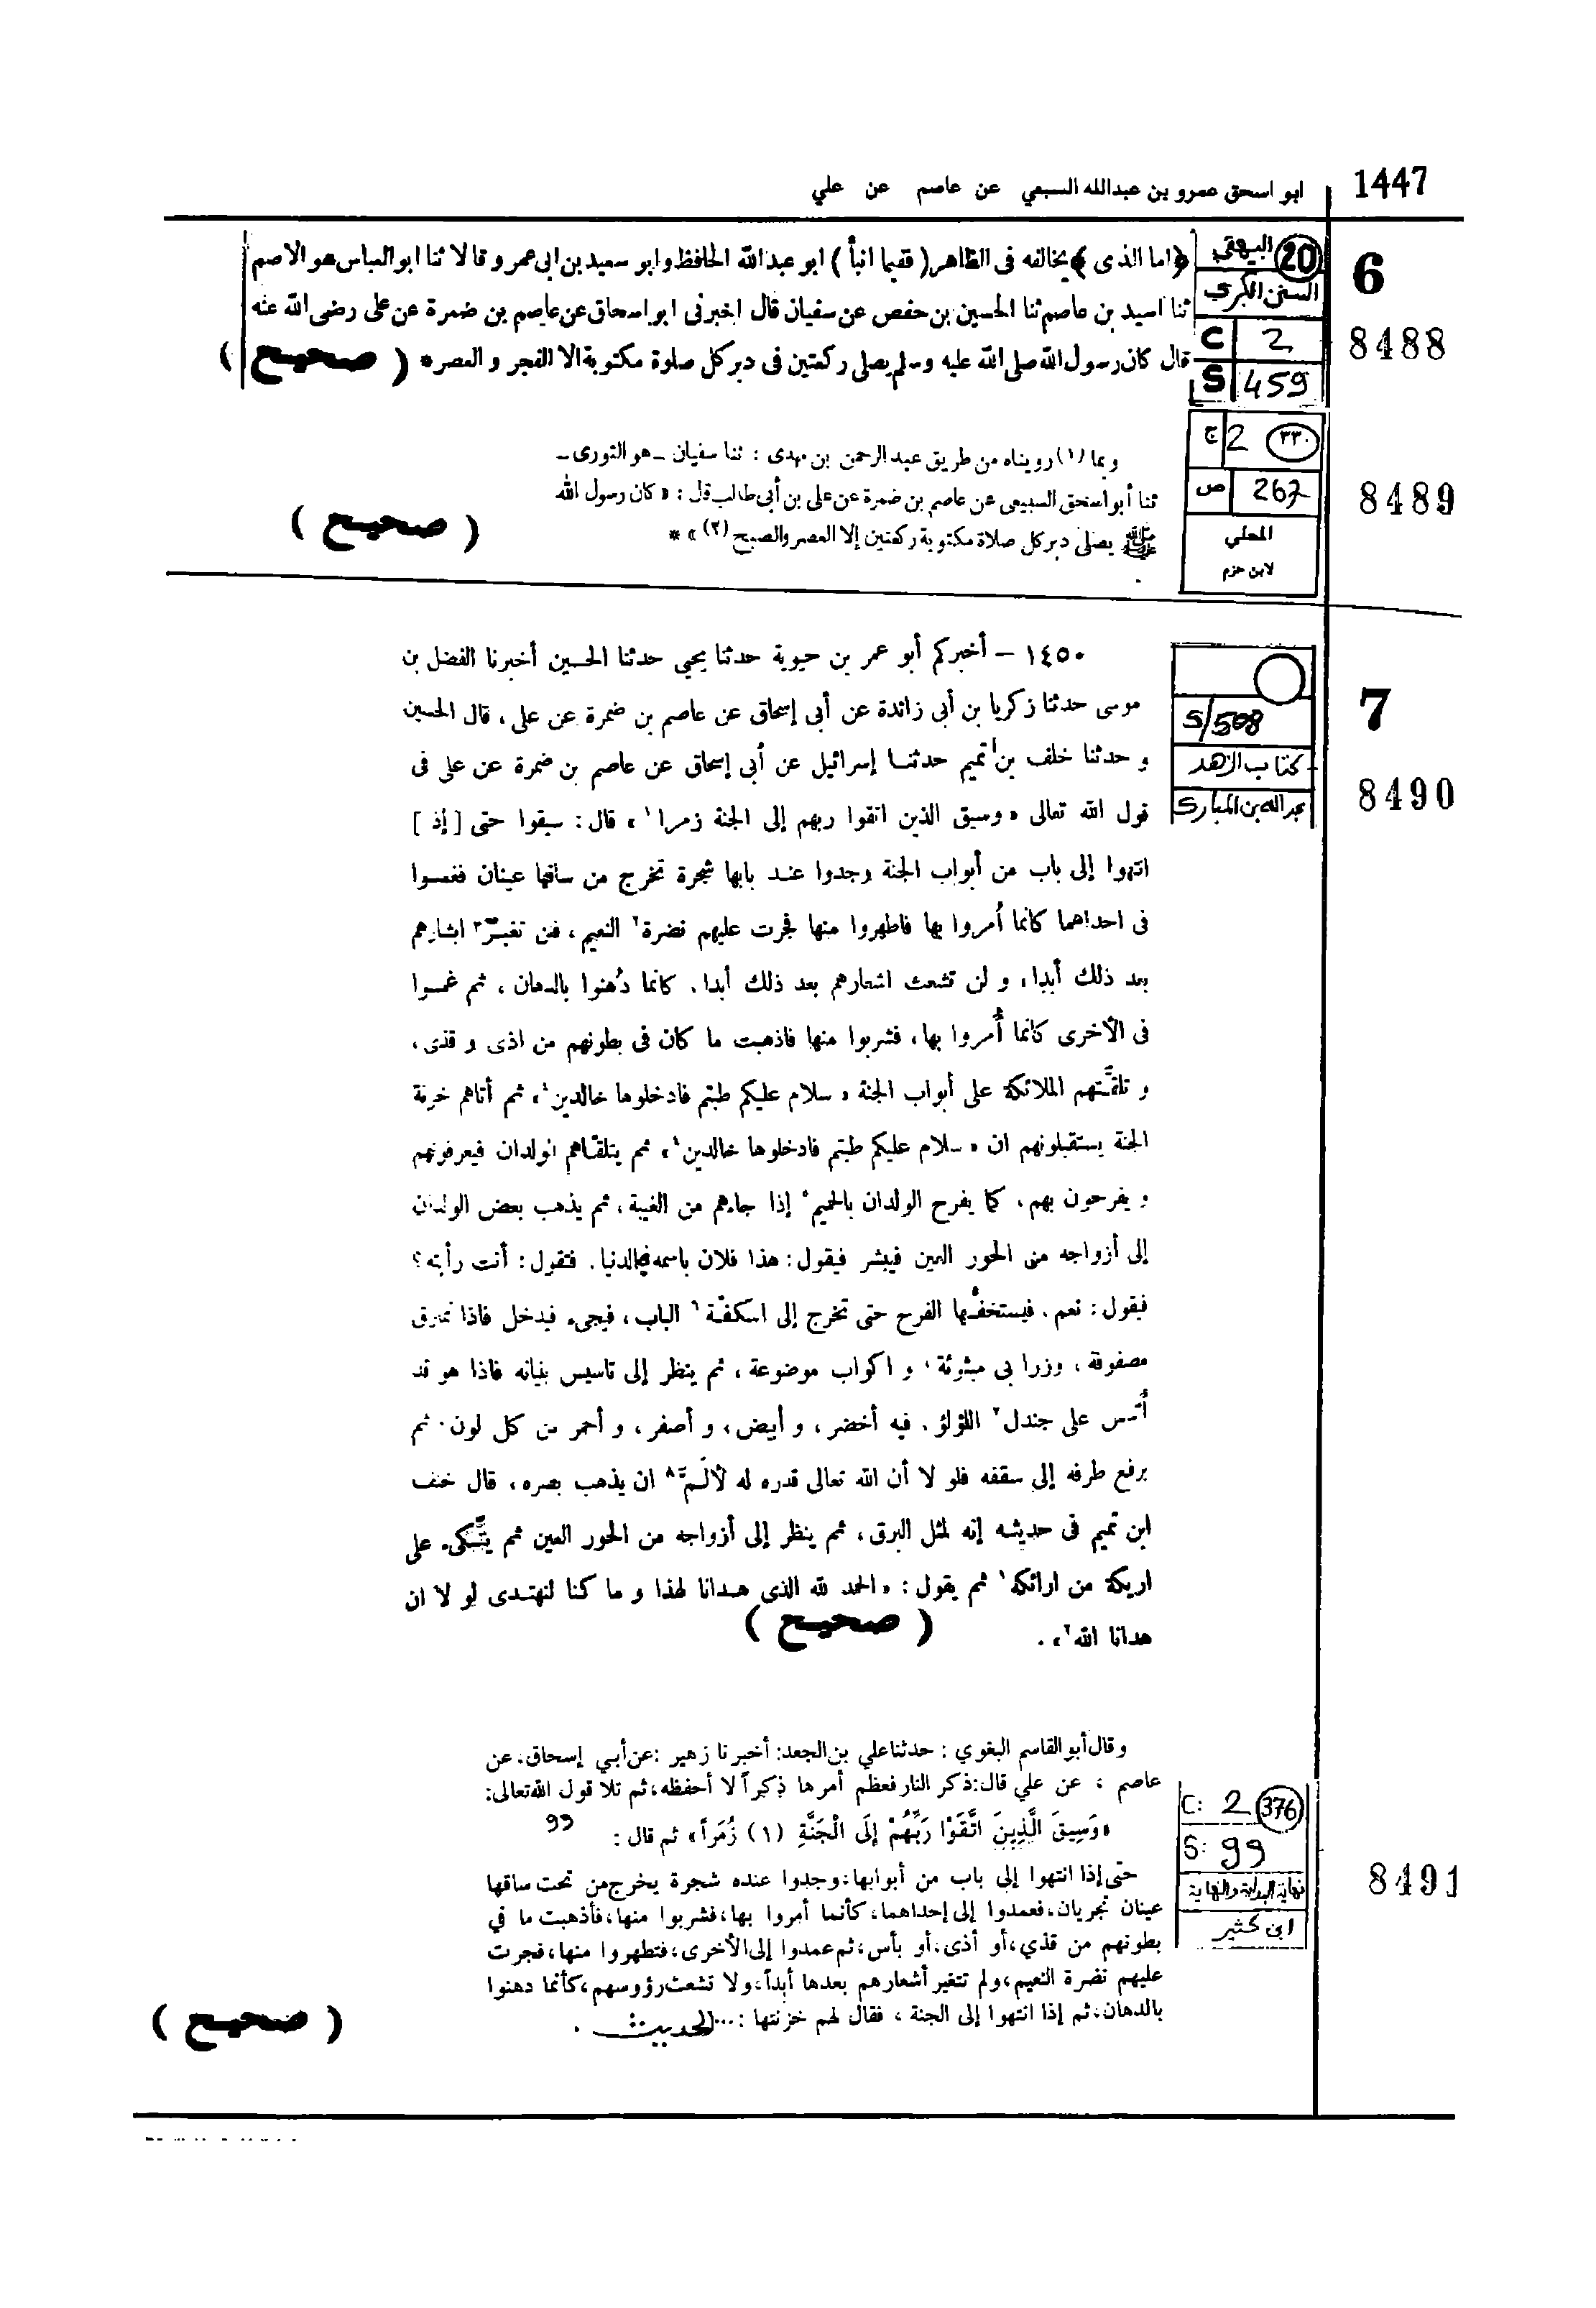 1447
ابو اسحق عمرو بن عبدالله السبعي عن عاصم عن علي
6
8488
20 البيهقي
السنن الكبرى
C 2
S 459
﴿ اما الذى ﴾ يخالفه فى الظاهر ( ففيما انبأ ) ابو عبدالله الحافظ وابو سعيد بن ابى عمرو قالا ثنا ابو العباس هو الاصم
ثنا اسيد بن عاصم ثنا الحسين بن حفص عن سفيان قال اخبرنى ابو اسحاق عن عاصم بن ضمرة عن على رضى الله عنه
قال كان رسول الله صلى الله عليه وسلم يصلى ركعتين فى دبر كل صلوة مكتوبة الا الفجر و العصر * ( صحيح )
8489
ج 2 ٣٣٠
ص 267
المحلي
لابن حزم
وبما (١) رويناه من طريق عبد الرحمن بن مهدى : ثنا سفيان ــ هو الثورى ــ
ثنا أبو اسحق السبيعى عن عاصم بن ضمرة عن على بن أبى طالب قال : « كان رسول الله
ﷺ يصلى دبر كل صلاة مكتوبة ركعتين إلا العصر والصبح (٢) » *
( صحيح )
7
8490
S/508
كتاب الزهد
عبدالله بن المبارك
١٤٥٠ – أخبركم أبو عمر بن حيوية حدثنا يحيي حدثنا الحسين أخبرنا الفضل بن
موسى حدثنا زكريا بن أبى زائدة عن أبى إسحاق عن عاصم بن ضمرة عن على ، قال الحسين
و حدثنا خلف بن تميم حدثنا إسرائيل عن أبى إسحاق عن عاصم بن ضمرة عن على فى
قول الله تعالى « وسيق الذين اتقوا ربهم إلى الجنة زمرا ١ » قال : سيقوا حتى [ إذ ]
انتهوا إلى باب من أبواب الجنة وجدوا عند بابها شجرة تخرج من ساقها عينان فغمسوا
فى احداهما كأنما أُمروا بها فاطهروا منها فجرت عليهم نضرة ٢ النعيم ، فلن تغبّر ٣ ابشارهم
بعد ذلك أبدا ، و لن تشعث اشعارهم بعد ذلك أبدا . كانما دُهنوا بالدهان ، ثم غمسوا
فى الأخرى كأنما أُمروا بها ، فشربوا منها فاذهبت ما كان فى بطونهم من اذى و قذى ،
و تلقّتهم الملائكة على أبواب الجنة « سلام عليكم طبتم فادخلوها خالدين ٤ » ثم أتاهم خزنة
الجنة يستقبلونهم ان « سلام عليكم طبتم فادخلوها خالدين ٤ » ثم يتلقّاهم الولدان فيعرفونهم
و يفرحون بهم ، كما يفرح الولدان بالحميم ٥ إذا جاءهم من الغيبة ، ثم يذهب بعض الولدان
إلى أزواجه من الحور العين فيبشر فيقول : هذا فلان باسمه فى الدنيا . فتقول : أنت رأيته ؟
فيقول : نعم . فيستخفُّها الفرح حتى تخرج إلى اسكفّة ٦ الباب ، فيجىء فيدخل فاذا نمارق
مصفوفة ، وزرابى مبثوثة ، و اكواب موضوعة ، ثم ينظر إلى تاسيس بنيانه فاذا هو قد
أُسّس على جندل ٧ اللؤلؤ . فيه أخضر ، و أبيض ، و أصفر ، و أحمر من كل لون . ثم
يرفع طرفه إلى سقفه فلو لا أن الله تعالى قدره له لألَمّ ٨ ان يذهب بصره ، قال خلف
ابن تميم فى حديثه إنه لمثل البرق ، ثم ينظر إلى أزواجه من الحور العين ثم يتّكىء على
اريكة من ارائكه ١ ثم يقول : « الحمد لله الذى هدانا لهذا و ما كنا لنهتدى لو لا ان
هدانا الله ٢ » .
( صحيح )
8491
C: 2 376
S: 99
نهاية البداية والنهاية
ابن كثير
وقال أبو القاسم البغوي : حدثنا علي بن الجعد: أخبرنا زهير : عن أبي إسحاق، عن
عاصم ، عن علي قال : ذكر النار فعظم أمرها ذِكراً لا أحفظه ، ثم تلا قول الله تعالى :
«وَسِيقَ الَّذِينَ اتَّقَوْا رَبَّهُمْ إلَى الْجَنَّةِ (١) زُمَراً» ثم قال : 99
حتى إذا انتهوا إلى باب من أبوابها، وجدوا عنده شجرة يخرج من تحت ساقها
عينان تجريان، فعمدوا إلى إحداهما، كأنما أمروا بها، فشربوا منها، فأذهبت ما في
بطونهم من قذي، أو أذى، أو بأس، ثم عمدوا إلى الأخرى، فتطهروا منها، فجرت
عليهم نضرة النعيم، ولم تتغير أشعارهم بعدها أبداً، ولا تشعث رؤوسهم، كأنما دهنوا
بالدهان، ثم إذا انتهوا إلى الجنة ، فقال لهم خزنتها : ... الحديث .
( صحيح )